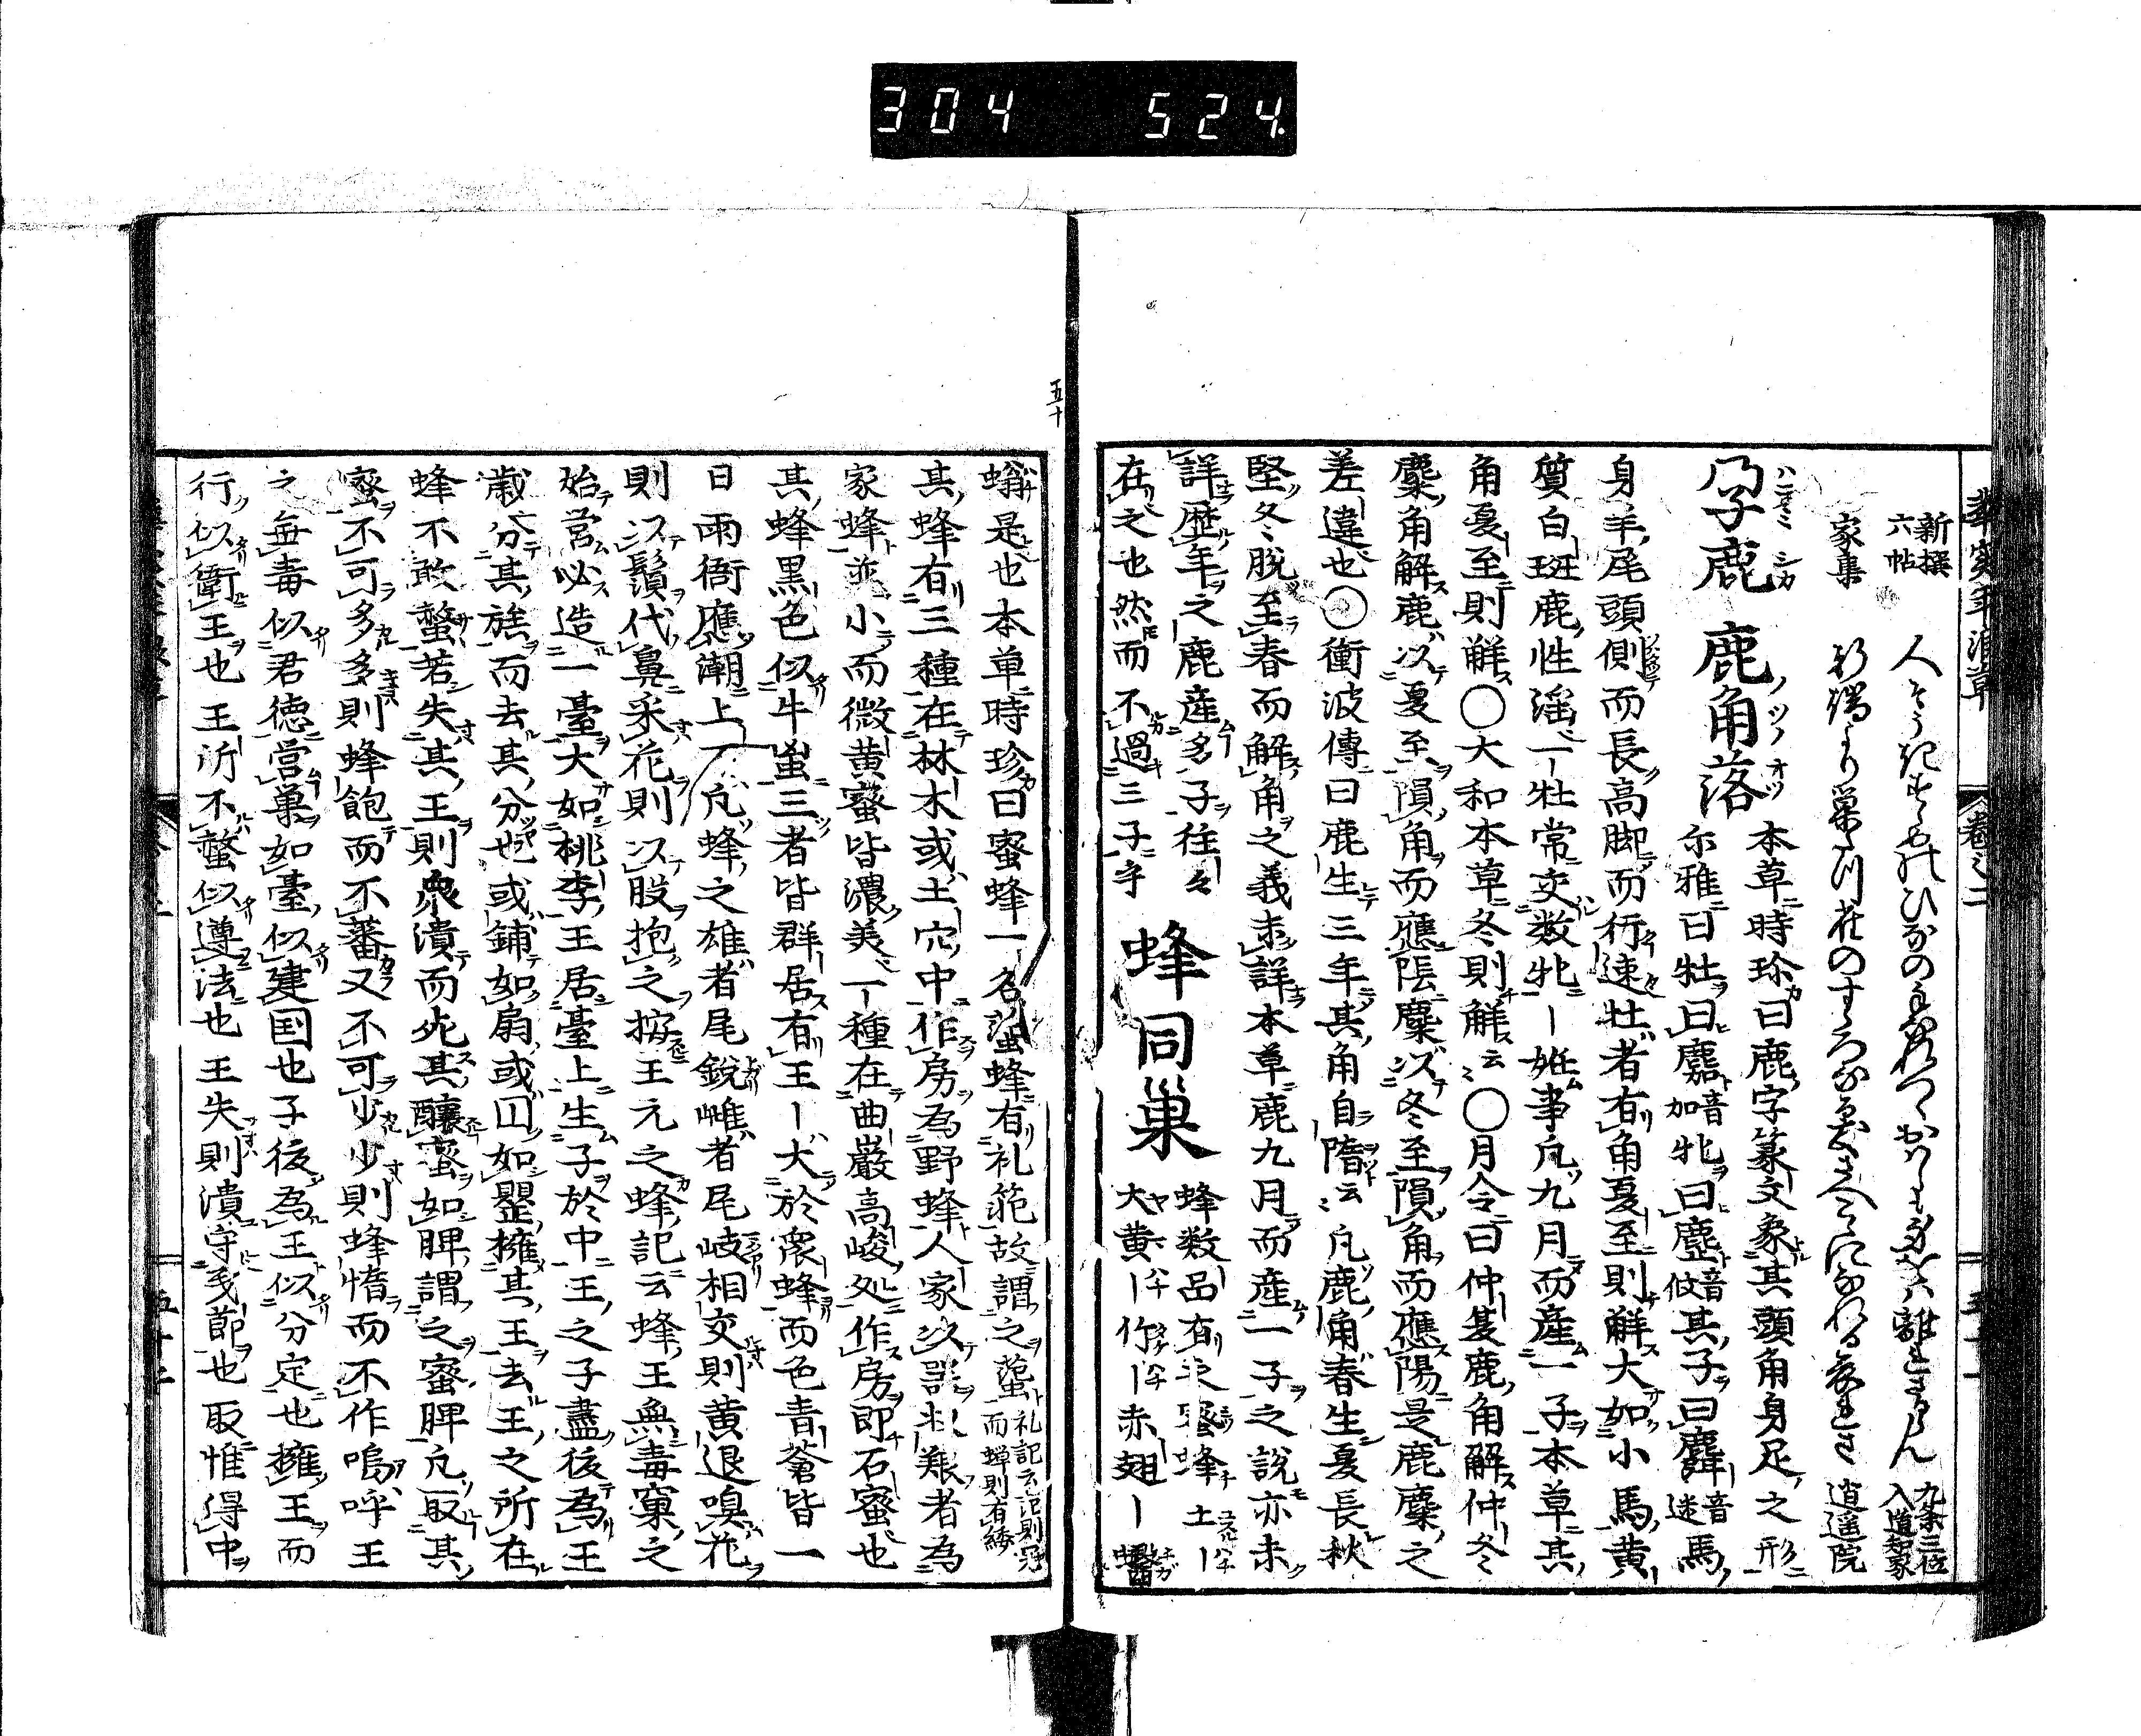 304 524.
新撰六帖
九条三位入道知家
家集
逍遥院
孕鹿 鹿角落
本草時珍曰鹿字篆文象其頭角身足之形
尓雅曰牡曰麚音加牝曰麀音攸其子曰麛音迷馬
身羊尾頭側而長高脚而行速牡者有角夏至則觧大如小馬黄
質白斑鹿性淫一牡常交数牝ー姙事凡九月而産一子本草其
角夏至則觧〇大和本草冬則觧云〻〇月令曰仲夏鹿角解仲冬
麋角解鹿以夏至隕角而應陰麋以冬至隕角而應陽是鹿麋之
差違也〇衝波傳曰鹿生三年其角自墮云〻凡鹿角春生夏長秋
堅冬脱至春而解角之義未詳本草鹿九月而産一子之説亦未
詳歴年之鹿産多子往々
在之也然而不過三子乎
蜂同巣
蜂数品有蜜蜂土ー
大黄ー竹ー赤翅ー
五十
螉是也本草時珍曰蜜蜂一名蠟蜂有礼範故謂之蠭
其蜂有三種在林木或土穴中作房為野蜂人家以器収養者為
家蜂並小而微黄蜜皆濃美一種在曲巌高峻処作房即石蜜也
其蜂黒色似牛蝱三者皆群居有王ー大於衆蜂而色青蒼皆一
日兩衙應潮上下凡蜂之雄者尾鋭雌者尾岐相交則黄退嗅花
則以鬚代鼻采花則以股抱之按王元之蜂記云蜂王無毒窠之
始営必造一臺大如桃李王居臺上生子於中王之子盡後為王
歳分其族而去其分也或鋪如扇或圓如罌擁其王去王之所在
蜂不敢螫若失其王則衆潰而死其釀蜜如脾謂之蜜脾凡取其
蜜不可多多則蜂飽而不蕃又不可少少則蜂惰而不作嗚呼王
之無毒似君徳営巣如臺似建国也子後為王似分定也擁王而
行似衛王也王所不螫似遵法也王失則潰守義節也取惟得中